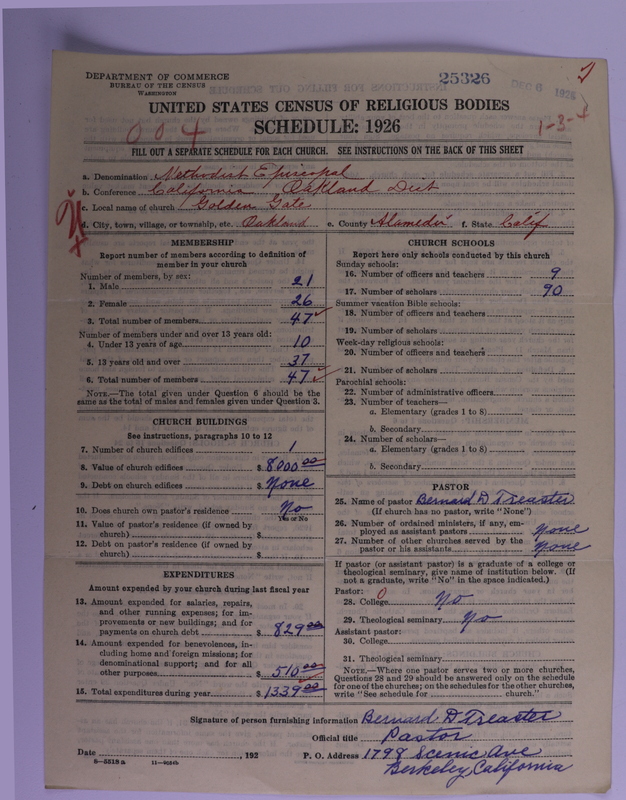 DEPARTMENT OF COMMERCE
BUREAU OF THE CENSUS
WASHINGTON
25326
DEC 6 1926
1-3-4
UNITED STATES CENSUS OF RELIGIOUS BODIES
004
SCHEDULE: 1926
FILL OUT A SEPARATE SCHEDULE FOR EACH CHURCH. SEE INSTRUCTIONS ON THE BACK OF THIS SHEET
a. Denomination Methodist Episcopal
b. Conference California Oakland Dist
c. Local name of church Golden Gate
d. City, town, village, or township, etc. Oakland e. County Alameda f. State Calif
MEMBERSHIP
Report number of members according to definition of
member in your church
Number of members, by sex:
1. Male 21
2. Female 26
3. Total number of members 47
Number of members under and over 13 years old:
4. Under 13 years of age 10
5. 13 years old and over 37
6. Total number of members 47
NOTE.—The total given under Question 6 should be
same as the total of males and females given under Question 3.
CHURCH BUILDINGS
See instructions, paragraphs 10 to 12
7. Number of church edifices 1
8. Value of church edifices $ 8000 00
9. Debt on church edifices $ None
10. Does church own pastor's residence? No
Yes or No
11. Value of pastor's residence (if owned by
church) $
12. Debt on pastor's residence (if owned by
church) $
EXPENDITURES
Amount expended by your church during last fiscal year
13. Amount expended for salaries, repairs,
and other running expenses; for im-
provements or new buildings; and for
payments on church debt $ 829 00
14. Amount expended for benevolences, in-
cluding home and foreign missions; for
denominational support; and for all
other purposes $ 510 00
15. Total expenditures during year $ 1339 00
CHURCH SCHOOLS
Report here only schools conducted by this church
Sunday schools:
16. Number of officers and teachers 9
17. Number of scholars 90
Summer vacation Bible schools:
18. Number of officers and teachers
19. Number of scholars
Week-day religious schools:
20. Number of officers and teachers
21. Number of scholars
Parochial schools:
22. Number of administrative officers
23. Number of teachers—
a. Elementary (grades 1 to 8)
b. Secondary
24. Number of scholars—
a. Elementary (grades 1 to 8)
b. Secondary
PASTOR
25. Name of pastor Bernard D Treaster
(If church has no pastor, write "None")
26. Number of ordained ministers, if any, em-
ployed as assistant pastors None
27. Number of other churches served by the
pastor or his assistants None
If pastor (or assistant pastor) is a graduate of a college or
theological seminary, give name of institution below. (If
not a graduate, write "No" in the space indicated.)
Pastor: 0
28. College No
29. Theological seminary No
Assistant pastor:
30. College
31. Theological seminary
NOTE.—Where one pastor serves two or more churches,
Questions 28 and 29 should be answered only on the schedule
for one of the churches; on the schedules for the other churches,
write "See schedule for church."
Signature of person furnishing information Bernard D Treaster
Official title Pastor
Date , 192 P. O. Address 1798 Scenic Ave
Berkeley, California
8—5519 a